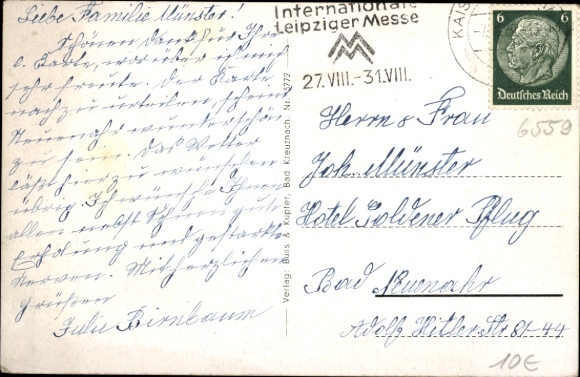 Liebe Familie Münster!
Schönen Dank für Ihre
l. Karte, worüber ich mich
sehr freute. Der Karte
nach zu urteilen, scheint
Neuenahr wunderschön
zu sein. Das Wetter
läßt hier zu wünschen
übrig. Ich wünsche Ihnen
allen nebst Söhnen gute
Erholung und gestärkte
Nerven. Mit herzlichen
Grüßen
Julie Birnbaum
Verlag Buss & Kupfer, Bad Kreuznach. Nr. 15772
Internationale
Leipziger Messe
27.VIII.-31.VIII.
KAIS
6 6
Deutsches Reich
6559
Herrn & Frau
Joh. Münster
Hotel Goldener Pflug
Bad Neuenahr
Adolf Hitler Str 81-44
10€